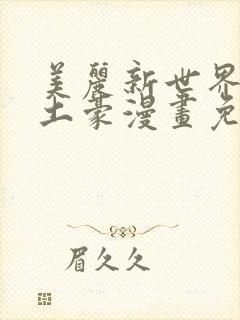 美麗新世界
土豪漫畫免
眉久久